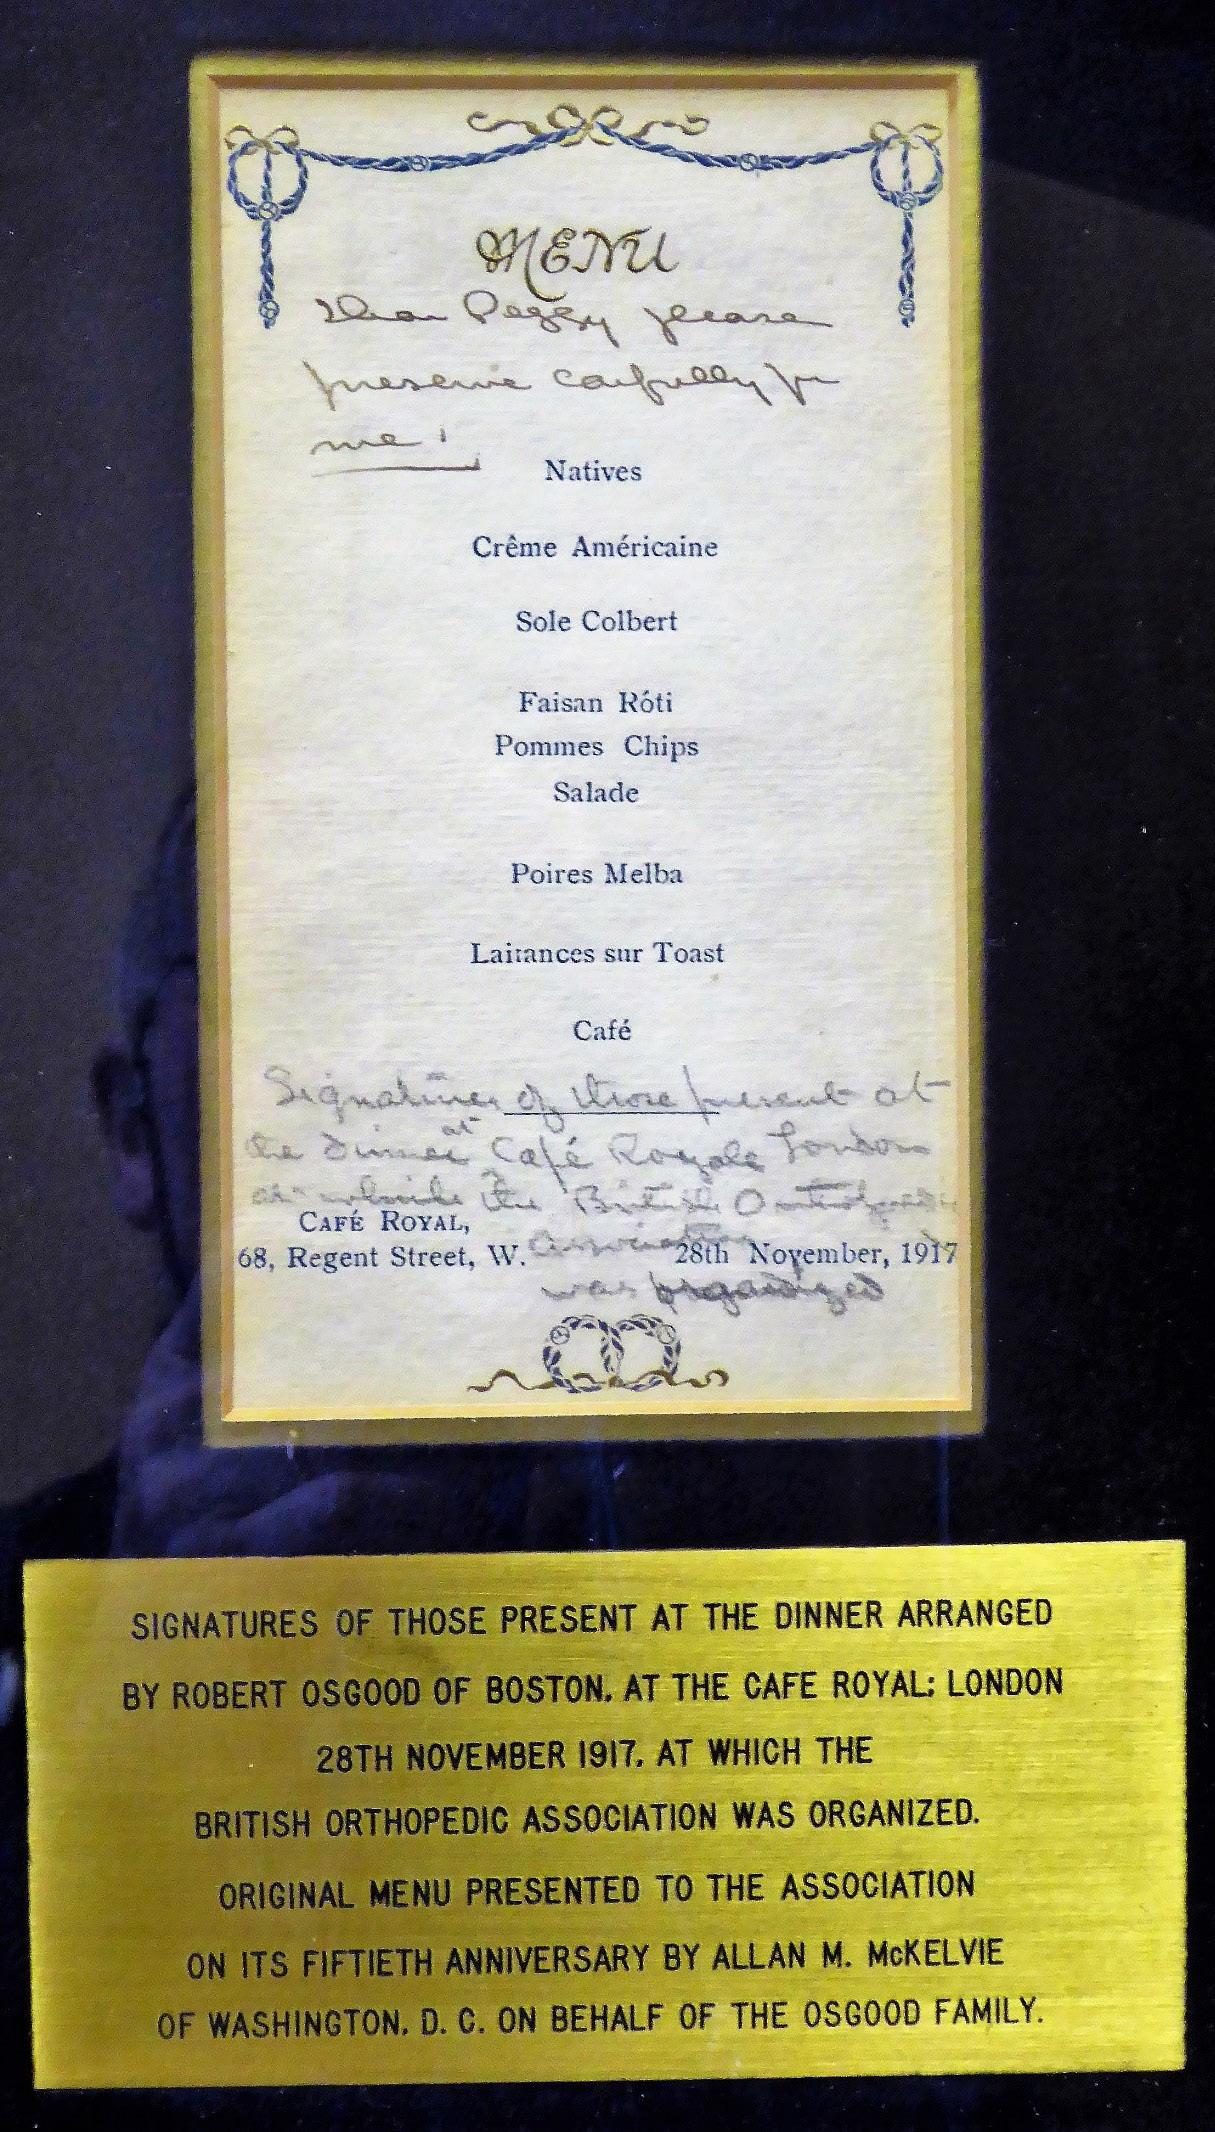 MENU
Dear Peggy please
preserve carfully for
me!
Natives
Crême Américaine
Sole Colbert
Faisan Róti
Pommes Chips
Salade
Poires Melba
Laitances sur Toast
Café
Signatures of those present at
the dinner at Café Royale London
at which the British Orthopedic
CAFÉ ROYAL,
Association
68, Regent Street, W. 28th November, 1917
was organized
SIGNATURES OF THOSE PRESENT AT THE DINNER ARRANGED
BY ROBERT OSGOOD OF BOSTON. AT THE CAFE ROYAL: LONDON
28TH NOVEMBER 1917. AT WHICH THE
BRITISH ORTHOPEDIC ASSOCIATION WAS ORGANIZED.
ORIGINAL MENU PRESENTED TO THE ASSOCIATION
ON ITS FIFTIETH ANNIVERSARY BY ALLAN M. McKELVIE
OF WASHINGTON. D. C. ON BEHALF OF THE OSGOOD FAMILY.